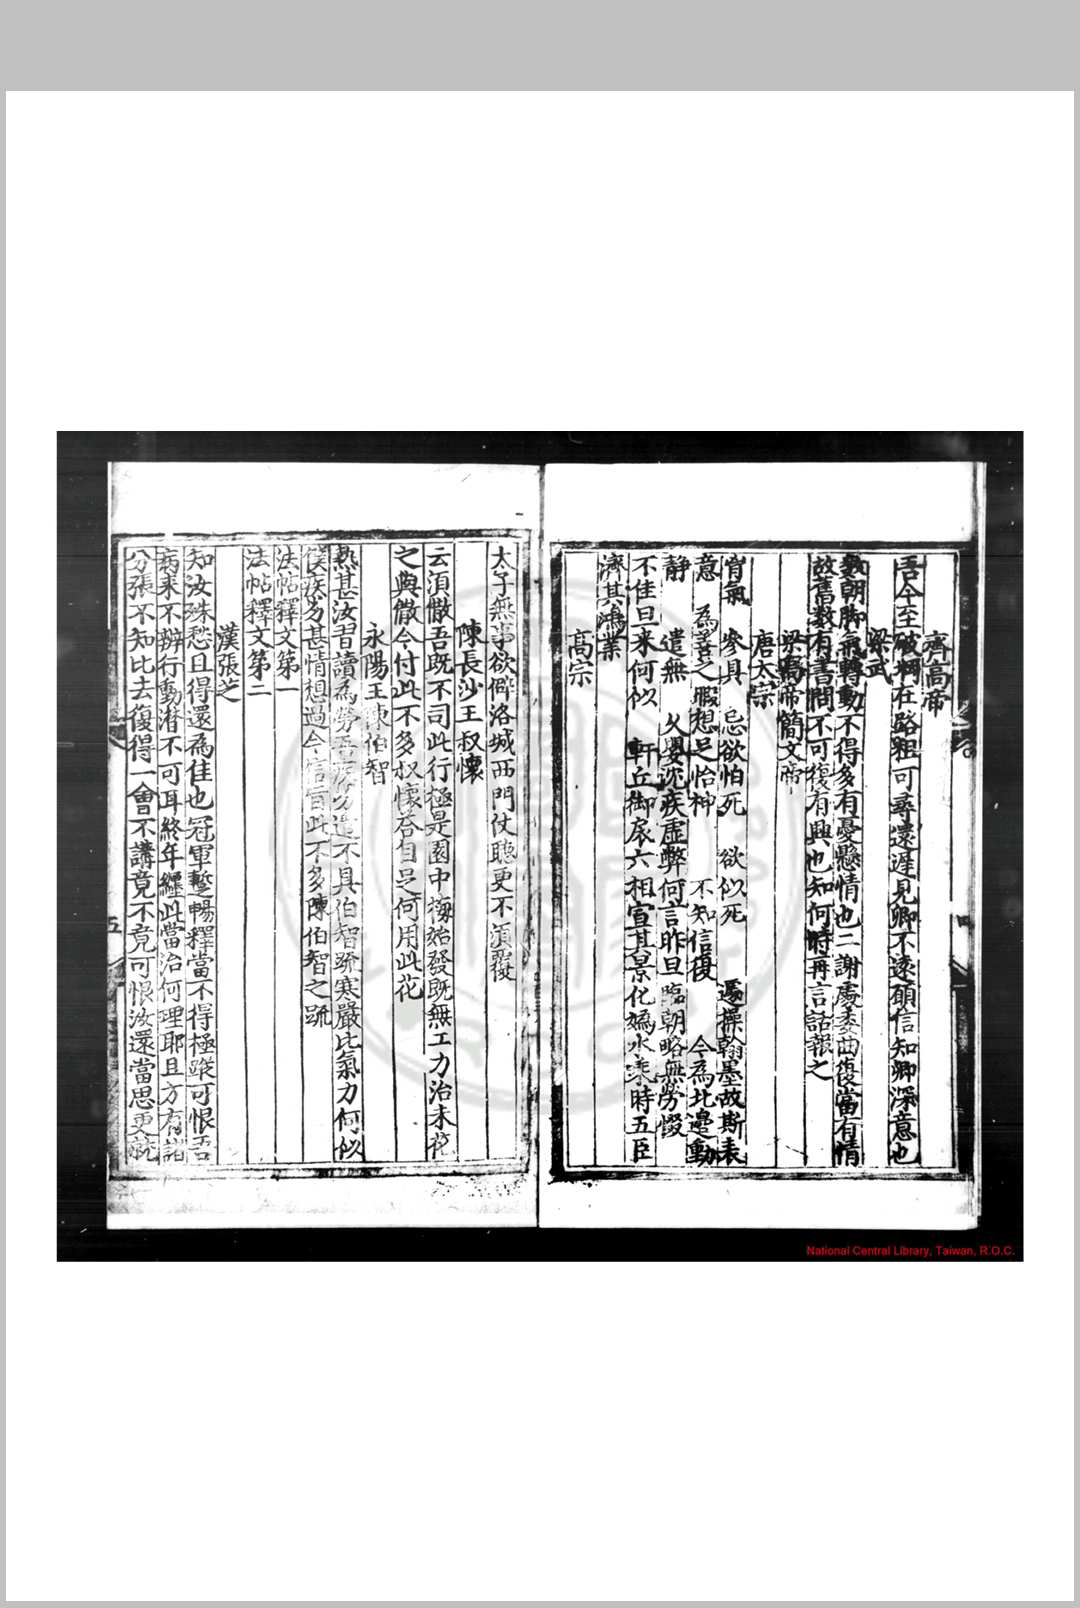 齊高帝
吾今至破堈在路粗可尋還遲見卿不遠頓信知卿深意也
梁武
數朝脚氣轉動不得多有憂懸情也二謝處委曲復當有情
故舊数有書問不可復有興也知何時再言話報之
梁高帝簡文帝
唐太宗
育氣 參具 忌欲怕死 欲似死 遂操翰墨故斯表
意 為善之暇想足怡神 不知信復 今為北邊動
静 遣無 久嬰沈疾虛弊何言昨旦臨朝略無勞惙
不佳旦来何似 軒丘御扆六相宣其景化媯水乘時五臣
濟其鴻業
高宗
太子無事欲僻洛城西門仗聽更不湏覆
陳長沙王叔懷
云湏僌吾既不司此行極是園中梅始發既無工力治未花
之與僌今付此不多叔懷荅自足何用此花
永陽王陳伯智
熱甚汝習讀為勞吾 不具伯智䟽寒嚴比氣力何似
僕疾 甚情想過今信旨此不多陳伯智之䟽
法帖釋文第一
法帖釋文第二
漢張芝
知汝殊愁且得還為佳也冠軍蹔暢釋當不得極蹤可恨吾
病来不辦行動潜不可耳終年纏此當治何理耶且方有諸
分張不知比去復得一會不講竟不竟可恨汝還當思更就
四
五
National Central Library, Taiwan, R.O.C.